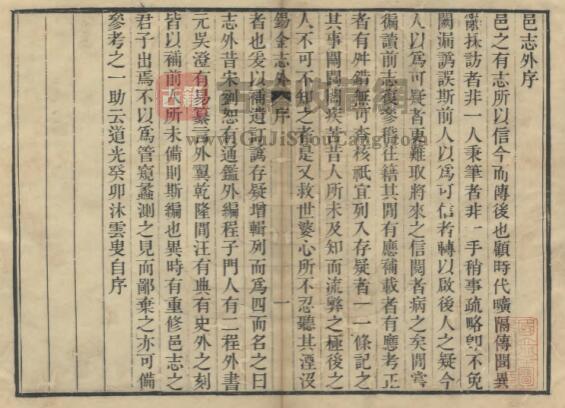 邑志外序
邑之有志所以信今而傳後也顧時代曠隔傳聞異
辭採訪者非一人秉筆者非一手稍事疏略卽不免
闕漏譌誤斯前人以爲可信者轉以啟後人之疑今
人以爲可疑者更難取將來之信閱者病之矣閒嘗
徧讀前志後參稽往籍其閒有應補載者有應考正
者有舛錯無可查核祇宜列入存疑者一一條記之
其事關閭閻疾苦昔人所未及知而流弊之極後之
人不可不知之者是又救世婆心所不忍聽其湮沒
者也爰以補遺訂譌存疑增輯列而爲四而名之曰
錫金志外 序 一
志外昔宋劉恕有通鑑外編程子門人有二程外書
元吳澄有易纂言外翼乾隆閒汪有典有史外之刻
皆以補前人所未備則斯編也異時有重修邑志之
君子出焉不以爲管窺蠡測之見而鄙棄之亦可備
參考之一助云道光癸卯沐雲叟自序
www.GuJiShouLang.com